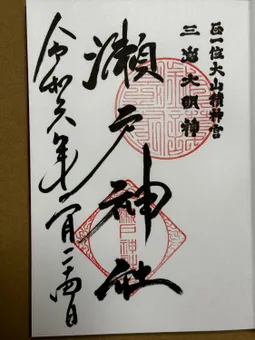 正一位大山積神宮
三島大明神
瀬戸神社
令和六年一月二十四日